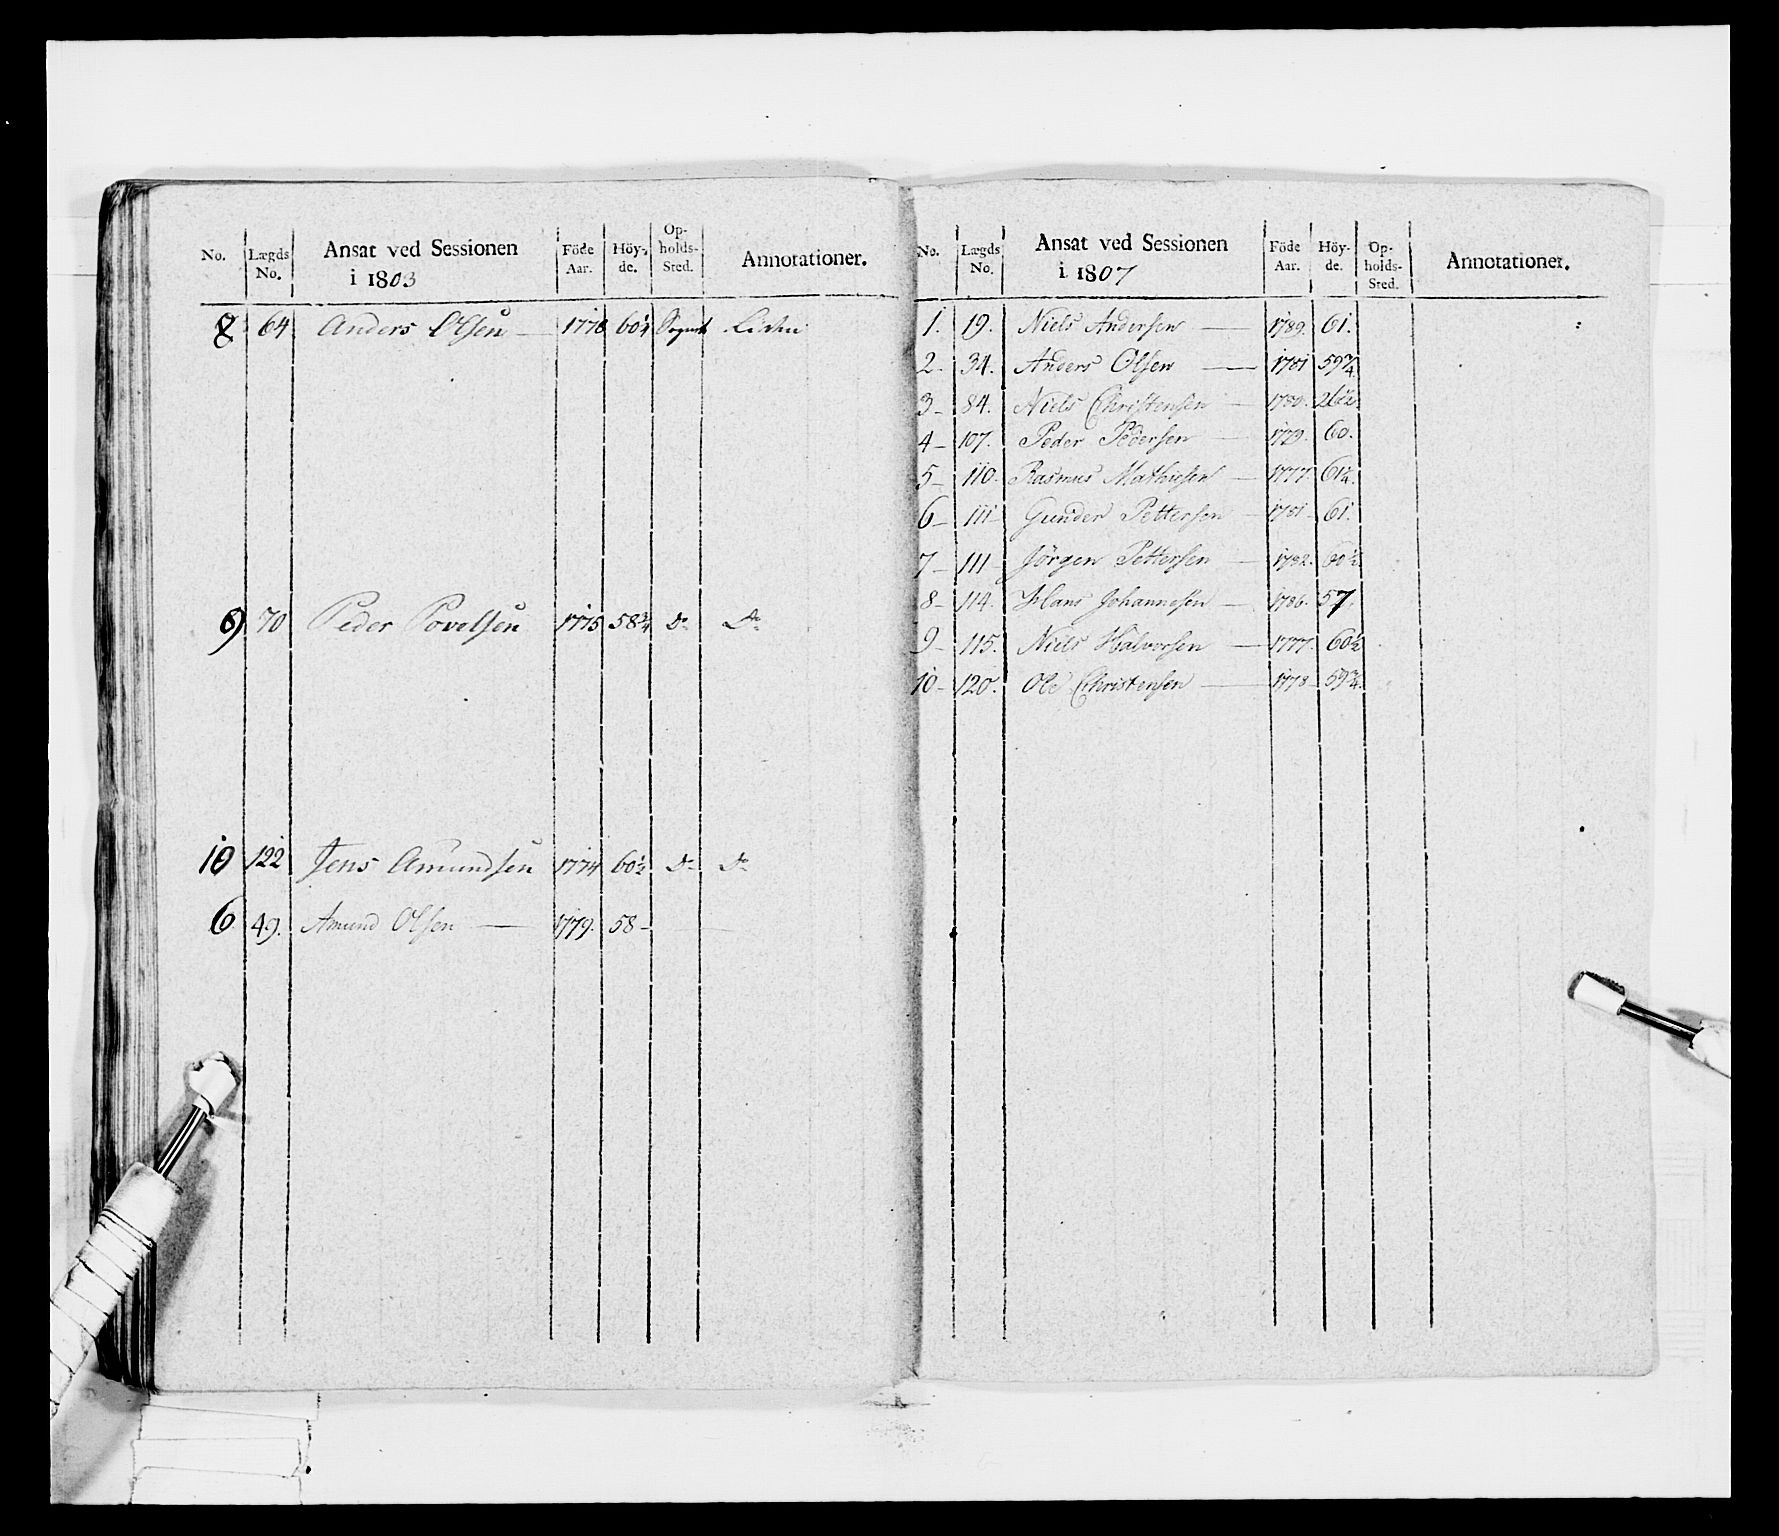 No. Lægds No. Ansat ved Sessionen i 1803 Föde Aar. Höy-de. Op-holds-Sted. Annotationer.
8 64 Anders Olsen — 1778 60¼
9 70 Peder Povelsen 1775 58¾ Do Do
10 122 Jens Amundsen 1774 60½ Do Do
6 49. Amund Olsen — 1779. 58 –
No. Lægds No. Ansat ved Sessionen i 1807 Föde Aar. Höy-de. Op-holds-Sted. Annotationer.
1. 19. Niels Andersen — 1789. 61.
2 – 34. Anders Olsen — 1781 59¾
3 – 84. Niels Christensen – 1780.
4 – 107. Peder Pedersen — 1779. 60.
5 – 110. Rasmus Mathiesen – 1777. 61¼.
6 – 111 – Gunder Pettersen – 1781 – 61.
7 – 111 Jörgen Pettersen — 1782. 60½
8 – 114. Hans Johannesen – 1786. 57.
9 – 115. Niels Halvorsen — 1777. 60½
10 – 120. Ole Christensen — 1778 – 59¾.